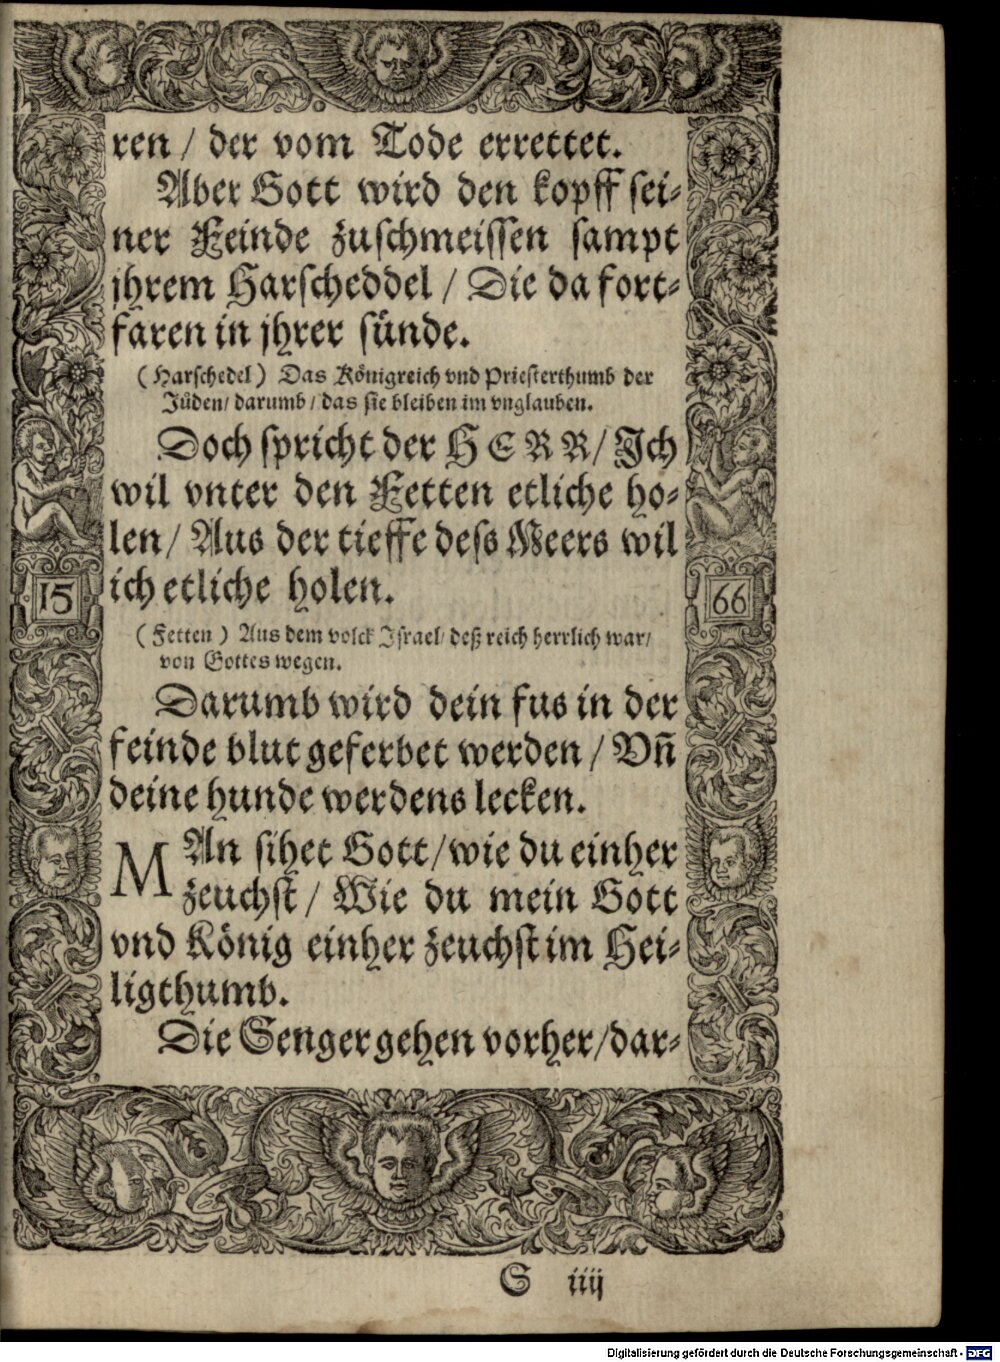 ren / der vom Tode errettet.
Aber Gott wird den kopff sei⸗
ner Feinde zuschmeissen sampt
jhrem Harscheddel / Die da fort⸗
faren in jhrer sünde.
( Harschedel ) Das Königreich vnd Priesterthumb der
Jüden / darumb / das sie bleiben im vnglauben.
Doch spricht der HERR / Jch
wil vnter den Fetten etliche ho⸗
len / Aus der tieffe dess Meers wil
ich etliche holen.
15
66
( Fetten ) Aus dem volck Israel / deß reich herrlich war /
von Gottes wegen.
Darumb wird dein fus in der
feinde blut geferbet werden / Vñ
deine hunde werdens lecken.
MAn sihet Gott / wie du einher
zeuchst / Wie du mein Gott
vnd König einher zeuchst im Hei⸗
ligthumb.
Die Senger gehen vorher / dar⸗
S iiij
Digitalisierung gefördert durch die Deutsche Forschungsgemeinschaft - DFG